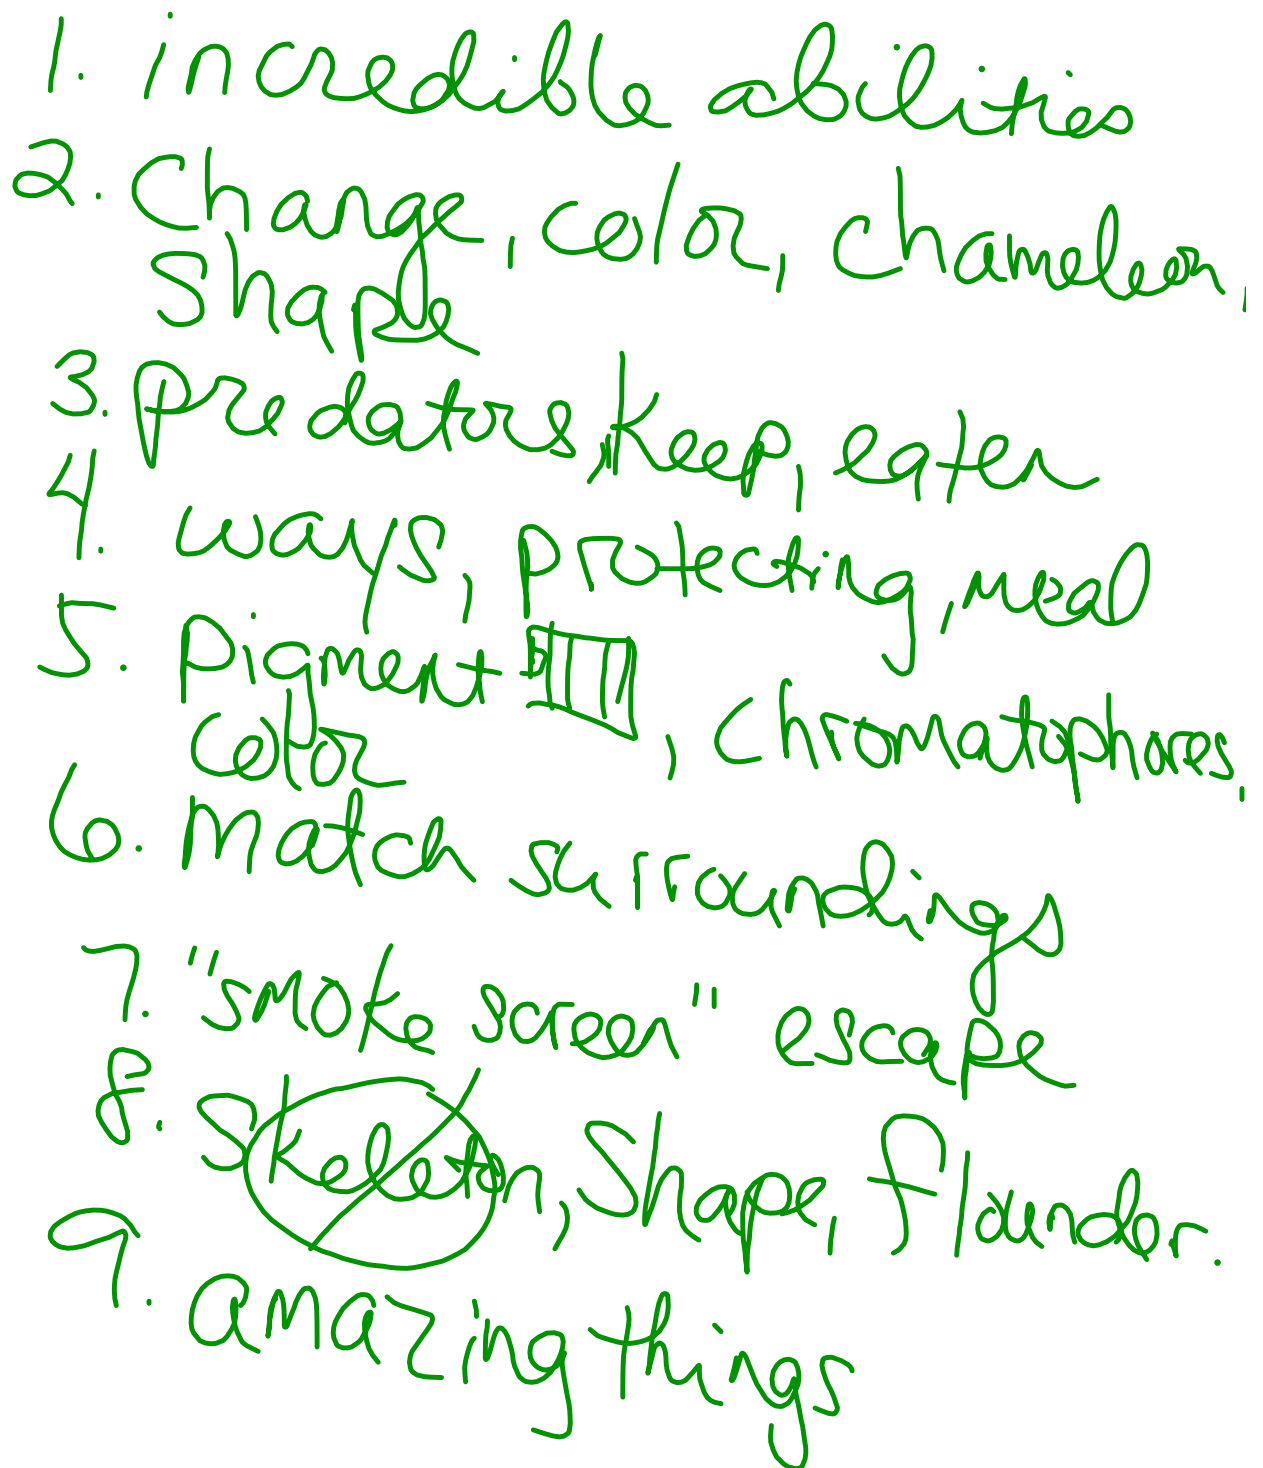 1. incredible abilities
2. Change, color, chameleon,
Shape
3. predators, keep, eaten
4. ways, protecting, meal
5. pigment, chromatophores,
color
6. match surroundings
7. "smoke screen" escape
8. Skeleton, Shape, flounder.
9. amazing things